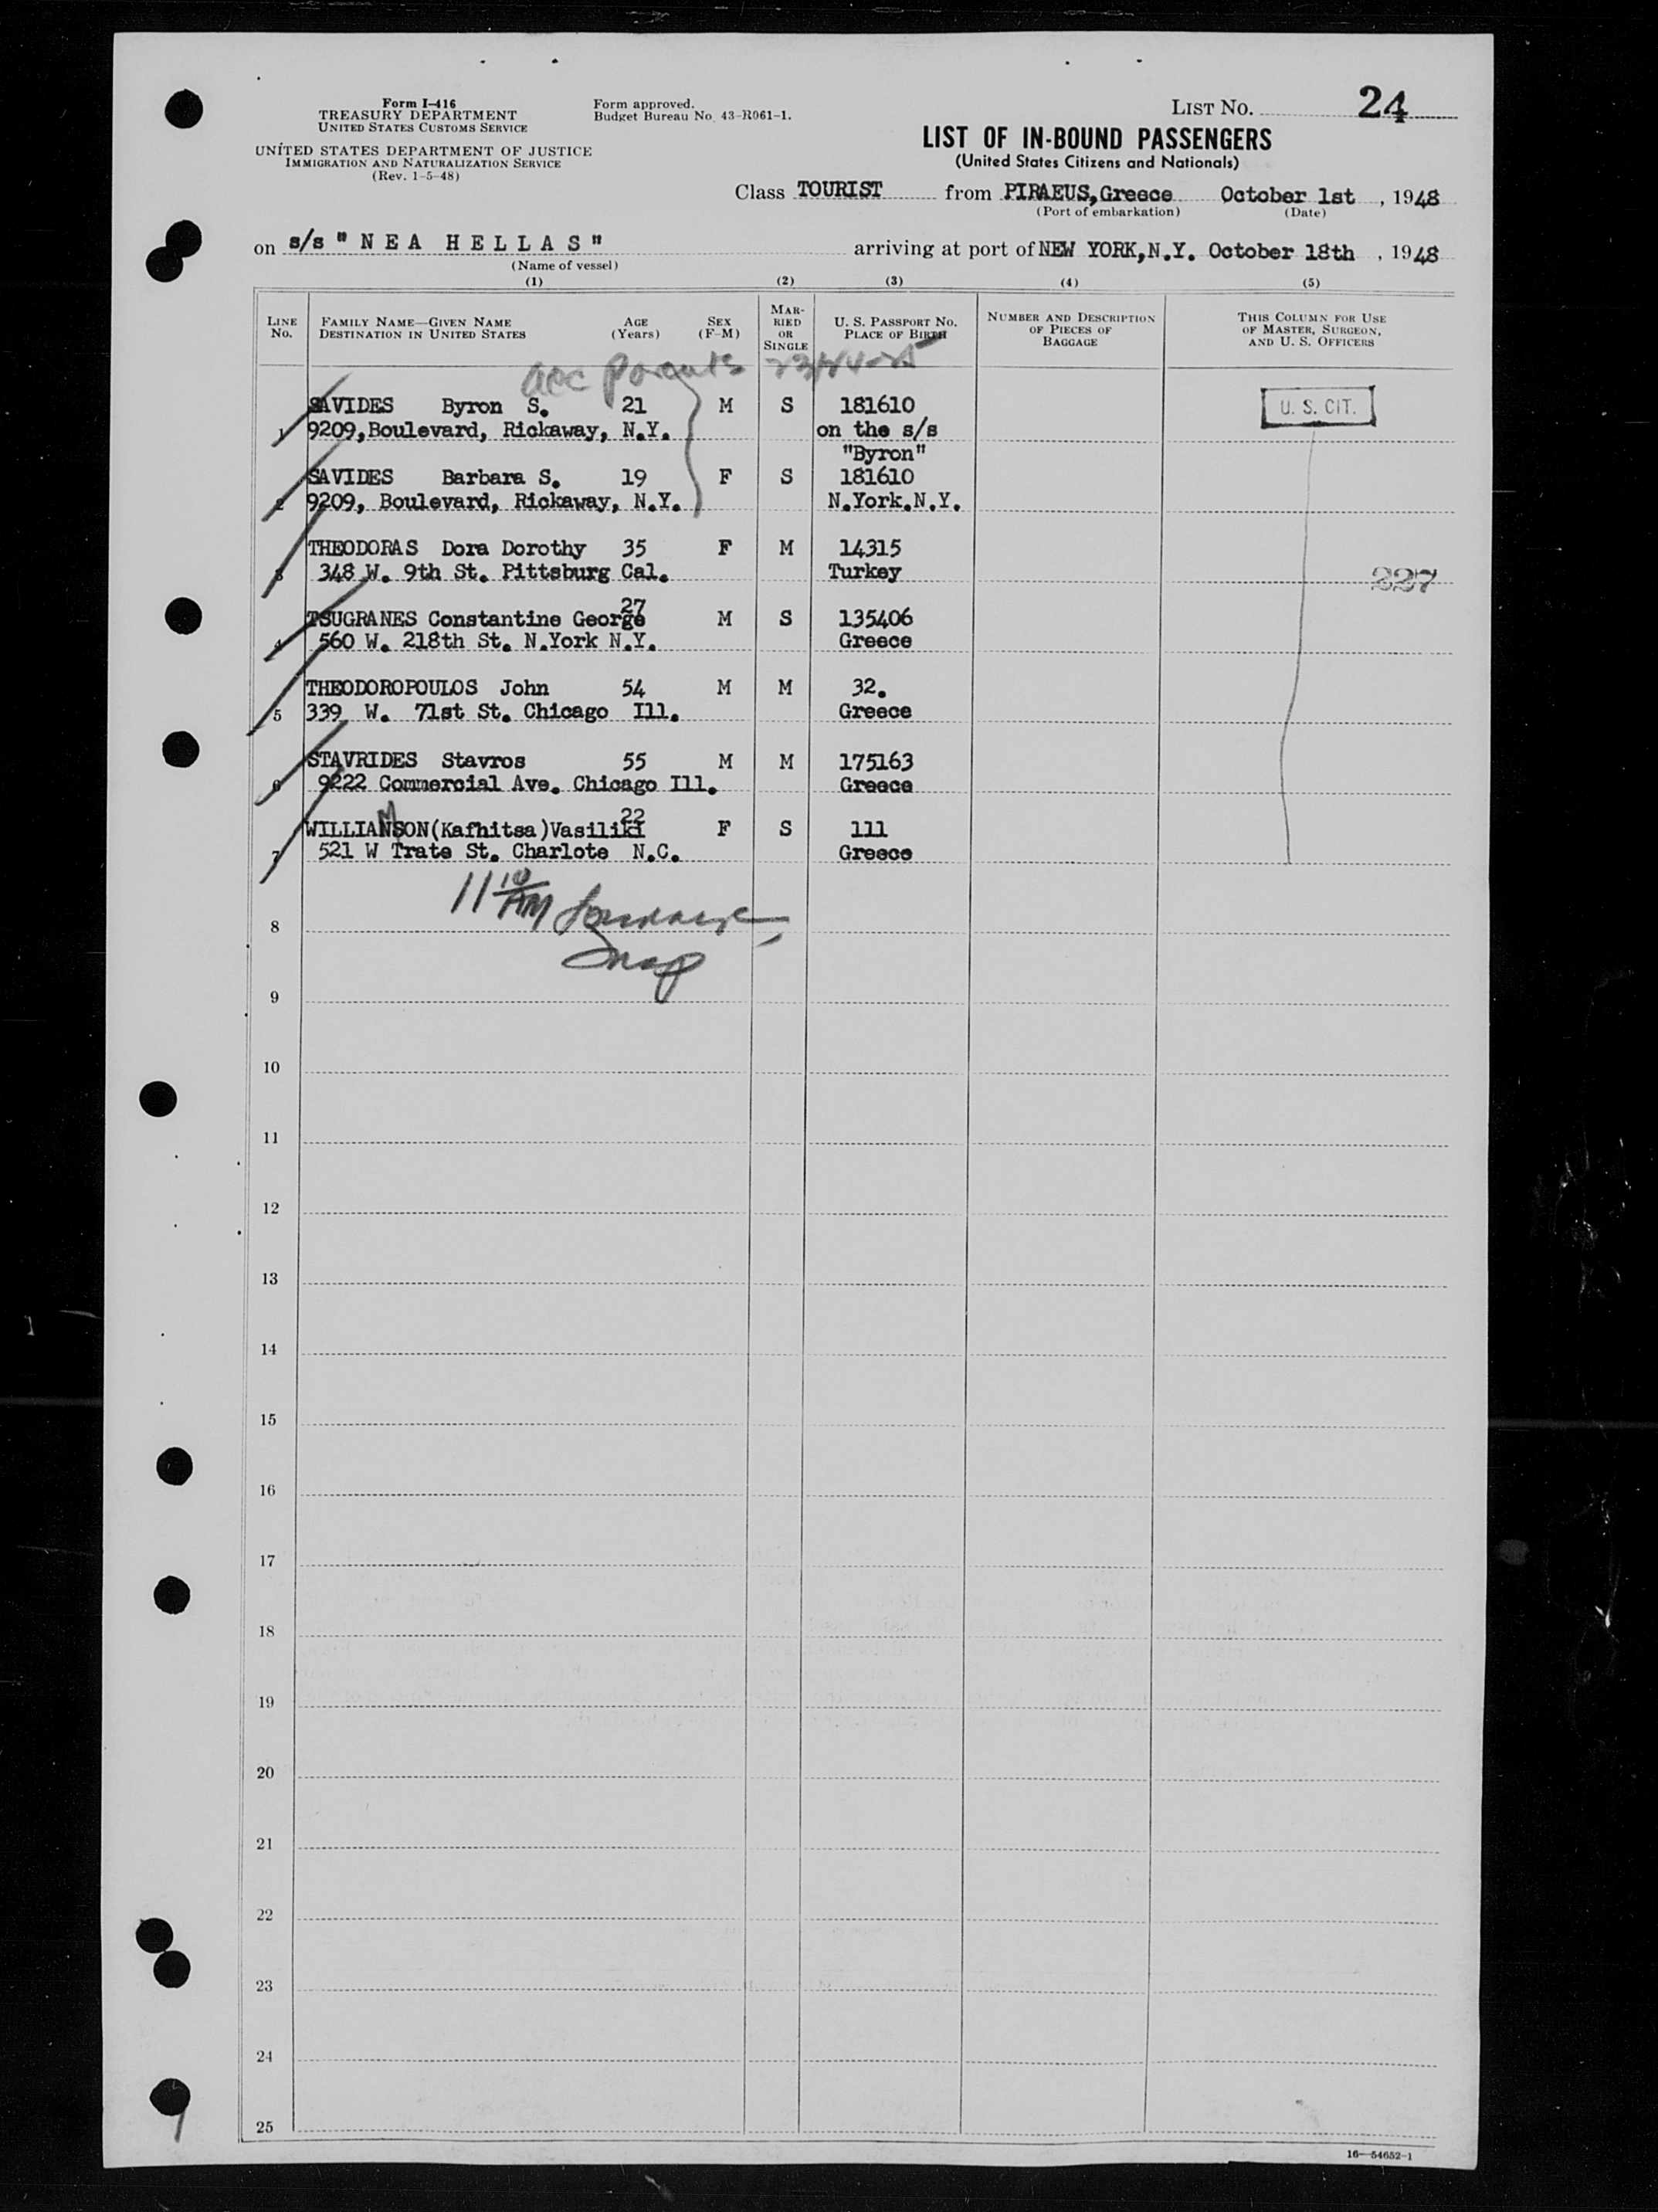 Form I-416
TREASURY DEPARTMENT
UNITED STATES CUSTOMS SERVICE
UNITED STATES DEPARTMENT OF JUSTICE
IMMIGRATION AND NATURALIZATION SERVICE
(Rev. 1-5-48)
Form approved.
Budget Bureau No. 43-R061-1.
LIST NO. 24
LIST OF IN-BOUND PASSENGERS
(United States Citizens and Nationals)
Class TOURIST from PIRAEUS,Greece October 1st , 1948
(Port of embarkation) (Date)
on s/s " N E A H E L L A S " arriving at port of NEW YORK,N.Y. October 18th , 1948
(Name of vessel)
(1) (2) (3) (4) (5)
LINE NO.
FAMILY NAME—GIVEN NAME
DESTINATION IN UNITED STATES
AGE (Years)
SEX (F-M)
MAR-
RIED
OR
SINGLE
U. S. PASSPORT NO.
PLACE OF BIRTH
NUMBER AND DESCRIPTION
OF PIECES OF
BAGGAGE
THIS COLUMN FOR USE
OF MASTER, SURGEON,
AND U. S. OFFICERS
acc parents
SAVIDES Byron S. 21 M S 181610 U. S. CIT.
1 9209,Boulevard, Rickaway, N.Y. on the s/s
"Byron"
SAVIDES Barbara S. 19 F S 181610
2 9209, Boulevard, Rickaway, N.Y. N.York.N.Y.
THEODORAS Dora Dorothy 35 F M 14315
3 348 W. 9th St. Pittsburg Cal. Turkey 227
27
TSUGRANES Constantine George M S 135406
4 560 W. 218th St. N.York N.Y. Greece
THEODOROPOULOS John 54 M M 32.
5 339 W. 71st St. Chicago Ill. Greece
STAVRIDES Stavros 55 M M 175163
6 9222 Commercial Ave. Chicago Ill. Greece
22
WILLIAMSON(Kafhitsa)Vasiliki F S 111
7 521 W Trate St. Charlote N.C. Greece
11 10 AM
8
9
10
11
12
13
14
15
16
17
18
19
20
21
22
23
24
25
16—54652-1